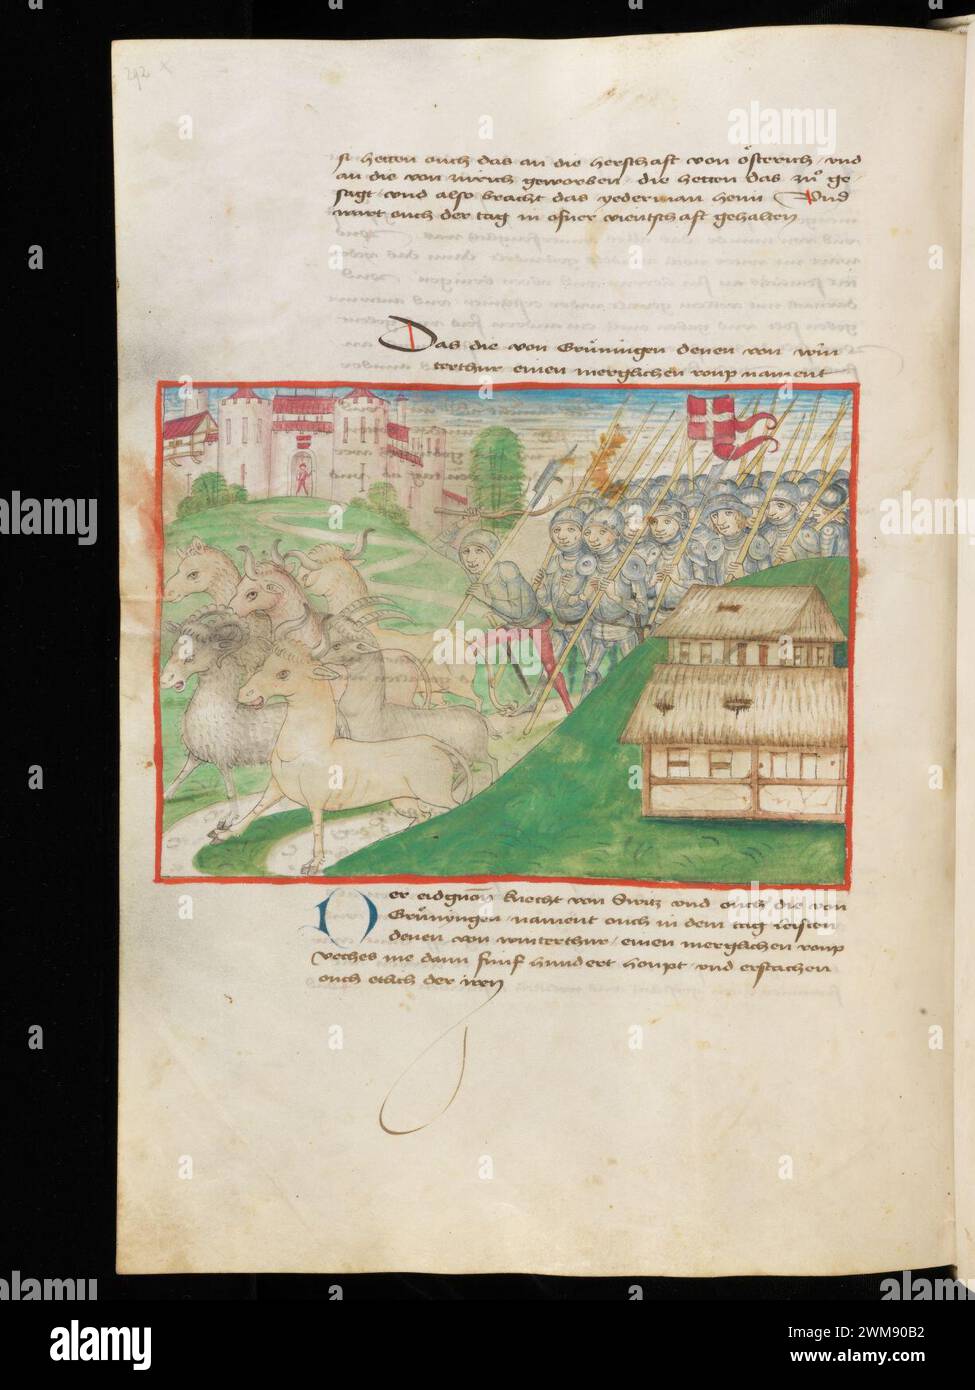 292 x
si hetten ouch das an die herschafft von österich und
an die von zürich geworben / die hetten das zuͦ ge-
sagt / und also bracht das yederman heim Und
wart ouch der tag in offner vientschafft gehalten
Das die von Grüningen denen von win
terthur einen merglichen roup nament
Der eidgnon knecht von Switz und ouch die von
Grüningen / nament ouch in dem tag leisten
denen von winterthur / einen merglichen roup
veches me dann fünf hundert houpt / und erstachen
ouch etlich der iren
alamy
alamy
alamy
Image ID: 2WM90B2
www.alamy.com